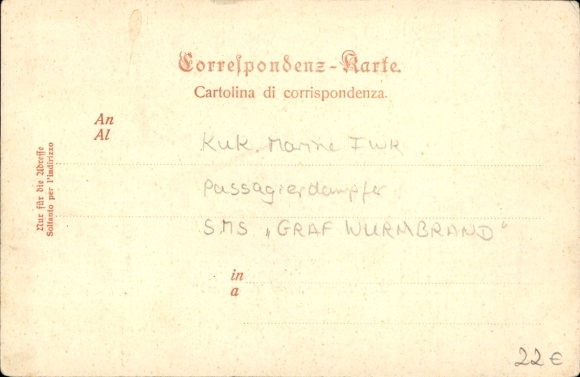 Correspondenz-Karte.
Cartolina di corrispondenza.
An
Al
Nur für die Adresse
Soltanto per l'indirizzo
KuK. Marine IWK
Passagierdampfer
SMS „GRAF WURMBRAND"
in
a
22 €